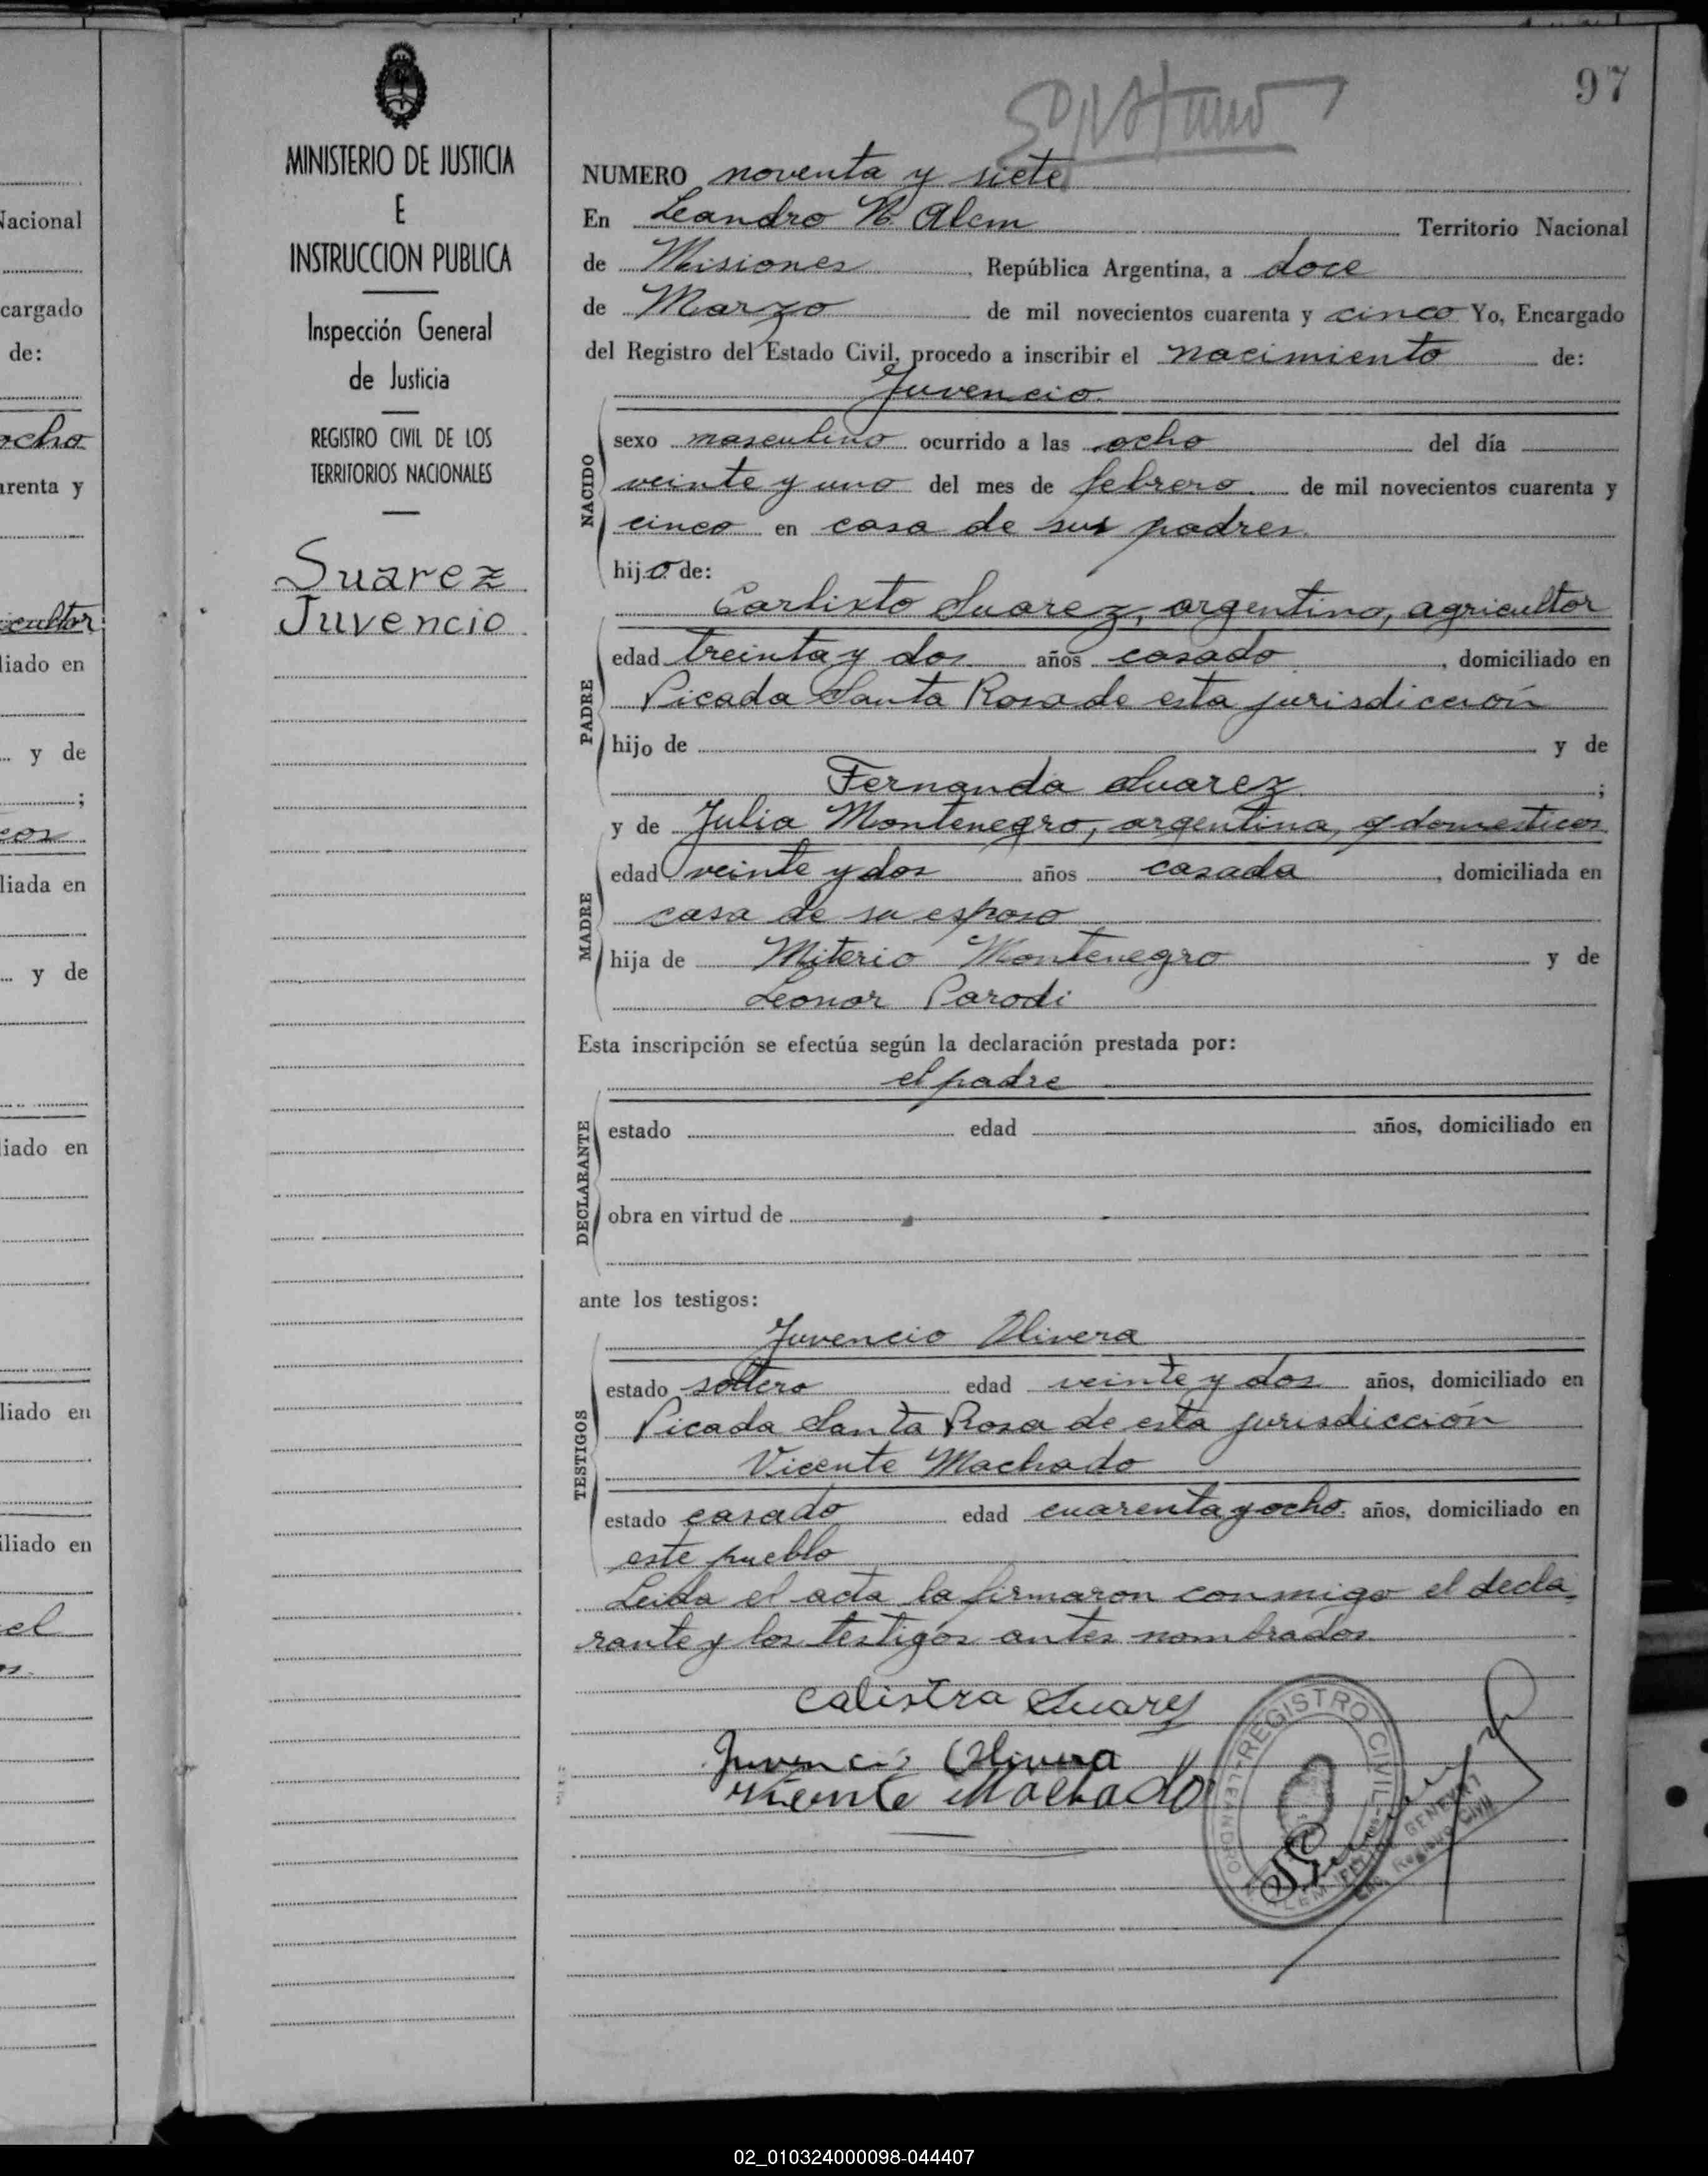 97
NUMERO noventa y siete
En Leandro N. Alem Territorio Nacional
de Misiones, República Argentina, a doce
de Marzo de mil novecientos cuarenta y cinco Yo, Encargado
del Registro del Estado Civil, procedo a inscribir el nacimiento de:
Juvencio.
NACIDO
sexo masculino ocurrido a las ocho del día
veinte y uno del mes de febrero de mil novecientos cuarenta y
cinco en casa de sus padres.
hijo de:
PADRE
Carlixto Suarez, argentino, agricultor
edad treinta y dos años casado, domiciliado en
Picada Santa Rosa de esta jurisdicción
hijo de y de
Fernanda Suarez.;
MADRE
y de Julia Montenegro, argentina, q domesticos.
edad veinte y dos años casada, domiciliada en
casa de su esposo
hija de Miterio Montenegro y de
Leonor Parodi
Esta inscripción se efectúa según la declaración prestada por:
el padre
DECLARANTE
estado edad años, domiciliado en
obra en virtud de
ante los testigos:
TESTIGOS
Juvencio Olivera
estado soltero edad veinte y dos años, domiciliado en
Picada Santa Rosa de esta jurisdicción
Vicente Machado
estado casado edad cuarenta y ocho. años, domiciliado en
este pueblo
Leida el acta la firmaron conmigo el decla
rante y los testigos antes nombrados.
calistra Suarez
Juvencio Olivera
Vicente Machado
REGISTRO CIVIL
MINISTERIO DE JUSTICIA
E
INSTRUCCION PUBLICA
Inspección General
de Justicia
REGISTRO CIVIL DE LOS
TERRITORIOS NACIONALES
Suarez
Juvencio
Nacional
cargado
de:
ocho
arenta y
icultor
liado en
y de
;
liada en
y de
liado en
liado en
iliado en
el
02_010324000098-044407